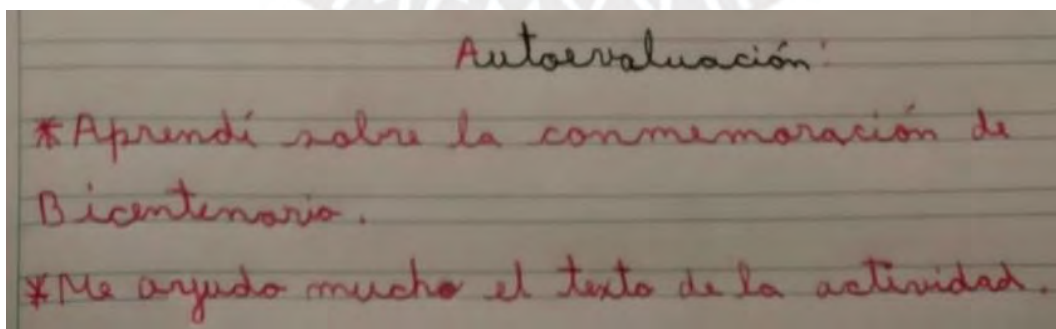 Autoevaluación:
*Aprendí sobre la conmemoración de
Bicentenario.
*Me ayudo mucho el texto de la actividad.